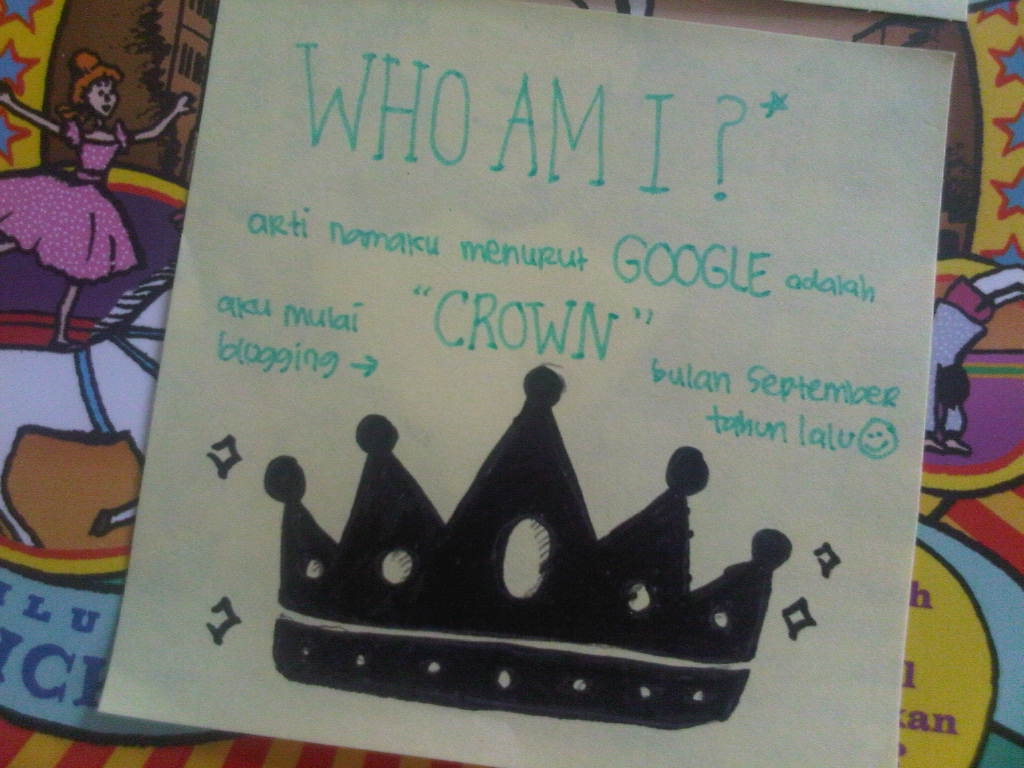 WHO AM I ?*
arti namaku menurut GOOGLE adalah
"CROWN"
aku mulai
blogging →
bulan September
tahun lalu ☺
ILU
ICK
h
l
kan